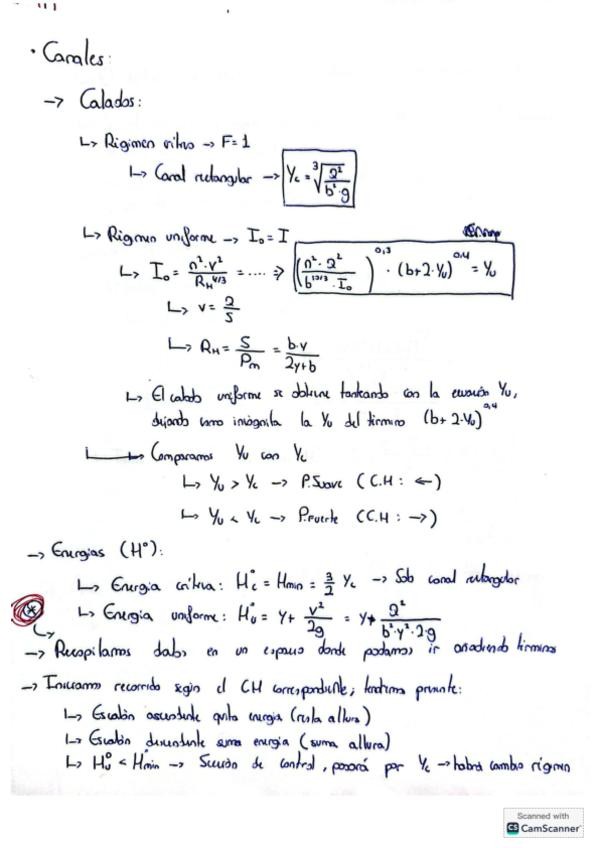 · Canales:
→ Calados:
↳ Régimen crítico → F=1
↳ Canal rectangular → Yc = ∛(Q²/(b²·g))
↳ Régimen uniforme → I₀ = I
↳ I₀ = n²·v²/R_H^(4/3) = ..... ⇒ (n²·Q²/(b^(10/3)·I₀))^0,3 · (b+2·Yu)^0,4 = Yu
↳ v = Q/S
↳ R_H = S/Pm = b·y/(2y+b)
↳ El calado uniforme se obtiene tanteando con la ecuación Yu,
dejando como incógnita la Yu del término (b+2·Yu)^0,4
↳ Comparamos Yu con Yc
↳ Yu > Yc → P.Suave (C.H: ←)
↳ Yu < Yc → P.Fuerte (C.H: →)
→ Energías (H°):
↳ Energía crítica: H°c = Hmin = 3/2 Yc → Solo canal rectangular
* ↳ Energía uniforme: H°u = y + v²/2g = y + Q²/(b²·y²·2·g)
→ Recopilamos datos en un espacio donde podamos ir añadiendo términos
→ Iniciamos recorrido según el CH correspondiente, tendremos presente:
↳ Escalón ascendente quita energía (resta altura)
↳ Escalón descendente suma energía (suma altura)
↳ H°u < H°min → Sección de control, pasará por Yc → habrá cambio régimen
Scanned with
CS CamScanner